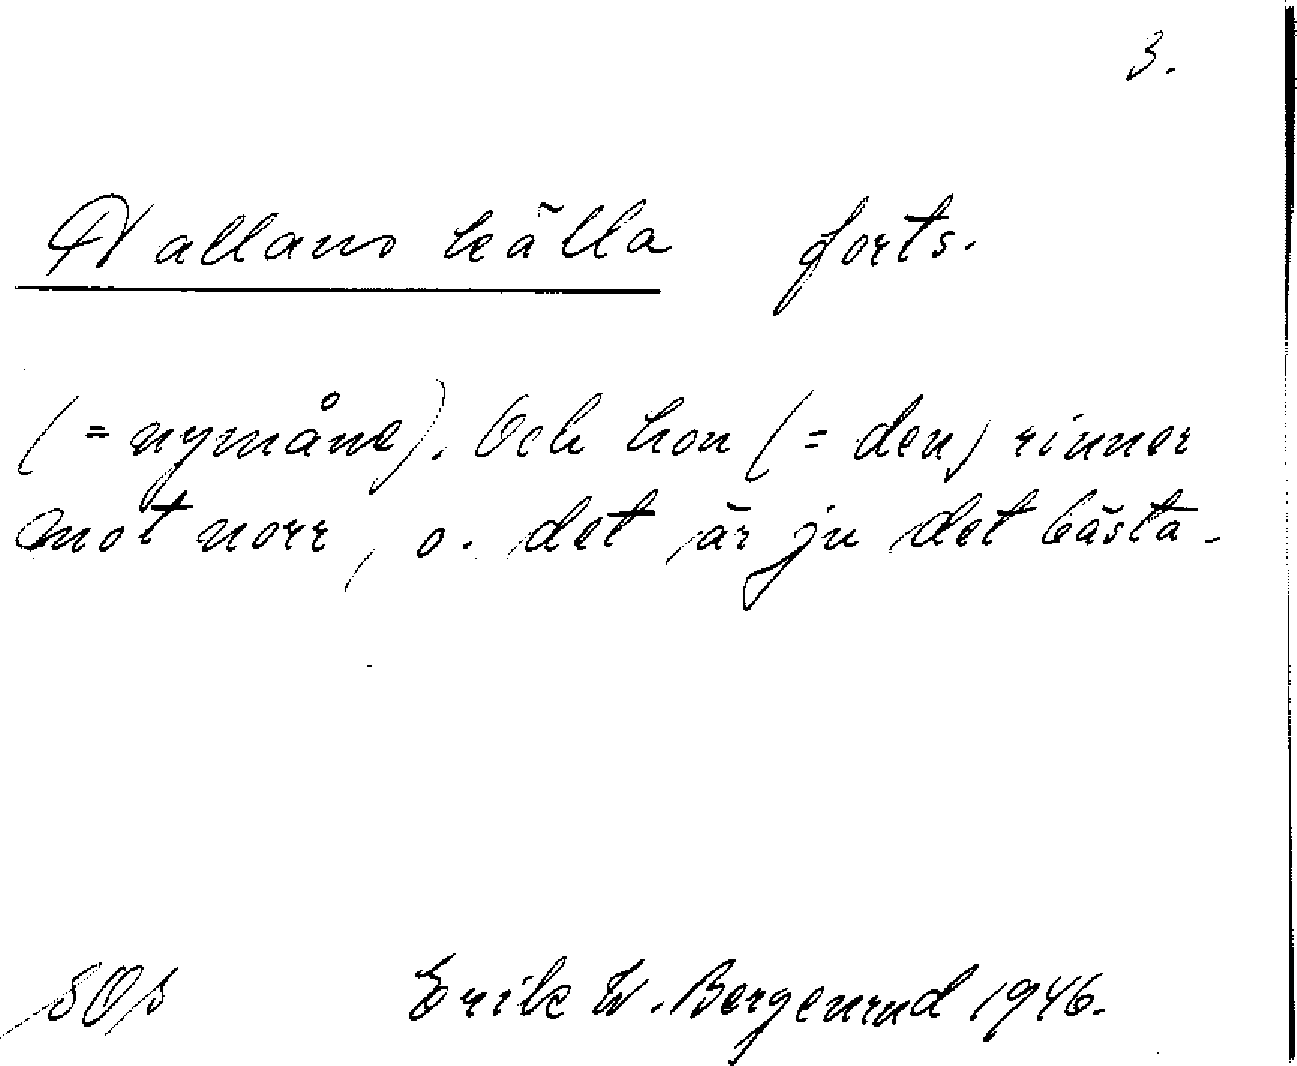 3.
Nallans källa forts.
(= nymåne). Och hon (= den) rinner
mot norr, o. det är ju det bästa.
SOs Erik W. Bergenrud 1946.